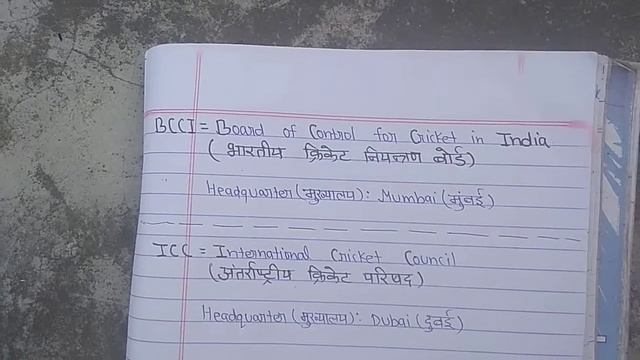 BCCI = Board of Control for Cricket in India
(भारतीय क्रिकेट नियन्त्रण बोर्ड)
Headquarter (मुख्यालय): Mumbai (मुंबई)
ICC = International Cricket Council
(अंतर्राष्ट्रीय क्रिकेट परिषद)
Headquarter (मुख्यालय): Dubai (दुबई)